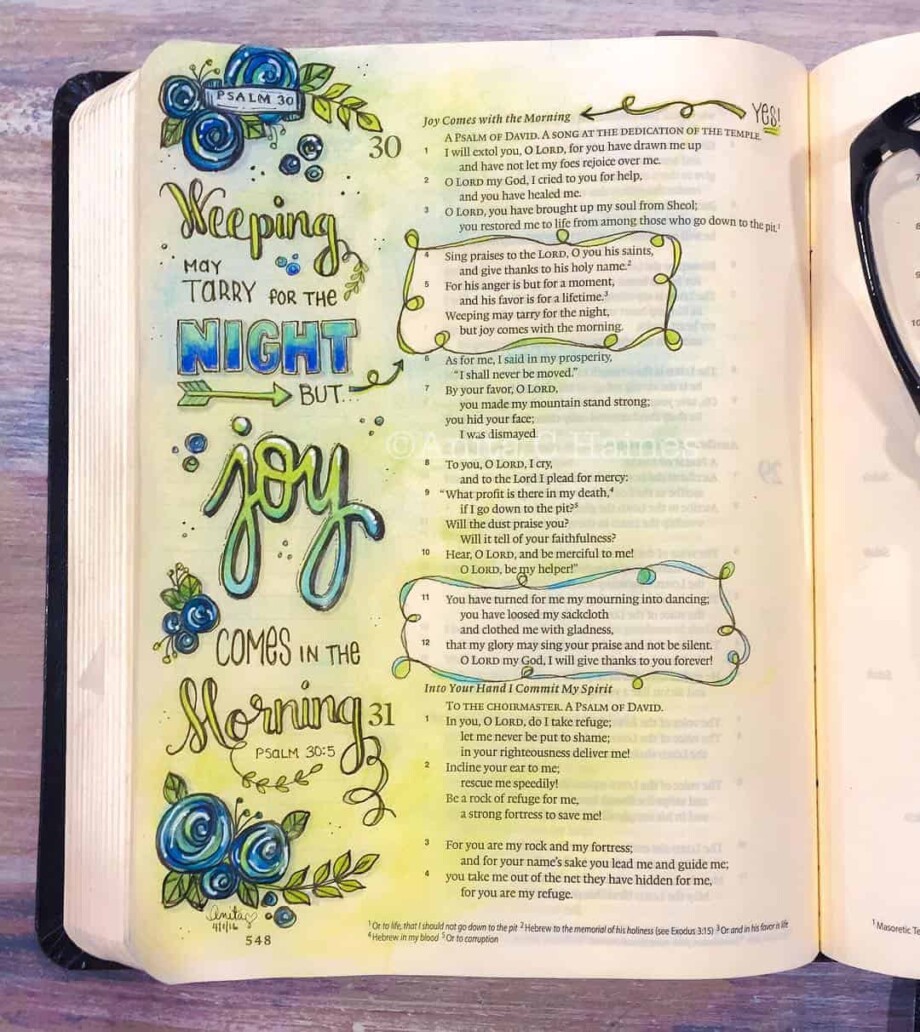 PSALM 30
Weeping
MAY
TARRY FOR THE
NIGHT
BUT...
joy
COMES IN THE
Morning
PSALM 30:5
Anita
4/1/16
548
Joy Comes with the Morning
YES!
30
A PSALM OF DAVID. A SONG AT THE DEDICATION OF THE TEMPLE.
1 I will extol you, O LORD, for you have drawn me up
and have not let my foes rejoice over me.
2 O LORD my God, I cried to you for help,
and you have healed me.
3 O LORD, you have brought up my soul from Sheol;
you restored me to life from among those who go down to the pit.1
4 Sing praises to the LORD, O you his saints,
and give thanks to his holy name.2
5 For his anger is but for a moment,
and his favor is for a lifetime.3
Weeping may tarry for the night,
but joy comes with the morning.
6 As for me, I said in my prosperity,
"I shall never be moved."
7 By your favor, O LORD,
you made my mountain stand strong;
you hid your face;
I was dismayed
©Anita C Haines
8 To you, O LORD, I cry,
and to the Lord I plead for mercy:
9 "What profit is there in my death,4
if I go down to the pit?5
Will the dust praise you?
Will it tell of your faithfulness?
10 Hear, O LORD, and be merciful to me!
O LORD, be my helper!"
11 You have turned for me my mourning into dancing;
you have loosed my sackcloth
and clothed me with gladness,
12 that my glory may sing your praise and not be silent.
O LORD my God, I will give thanks to you forever!
Into Your Hand I Commit My Spirit
31
TO THE CHOIRMASTER. A PSALM OF DAVID.
1 In you, O LORD, do I take refuge;
let me never be put to shame;
in your righteousness deliver me!
2 Incline your ear to me;
rescue me speedily!
Be a rock of refuge for me,
a strong fortress to save me!
3 For you are my rock and my fortress;
and for your name's sake you lead me and guide me;
4 you take me out of the net they have hidden for me,
for you are my refuge.
1 Or to life, that I should not go down to the pit 2 Hebrew to the memorial of his holiness (see Exodus 3:15) 3 Or and in his favor is life
4 Hebrew in my blood 5 Or to corruption
1 Masoretic